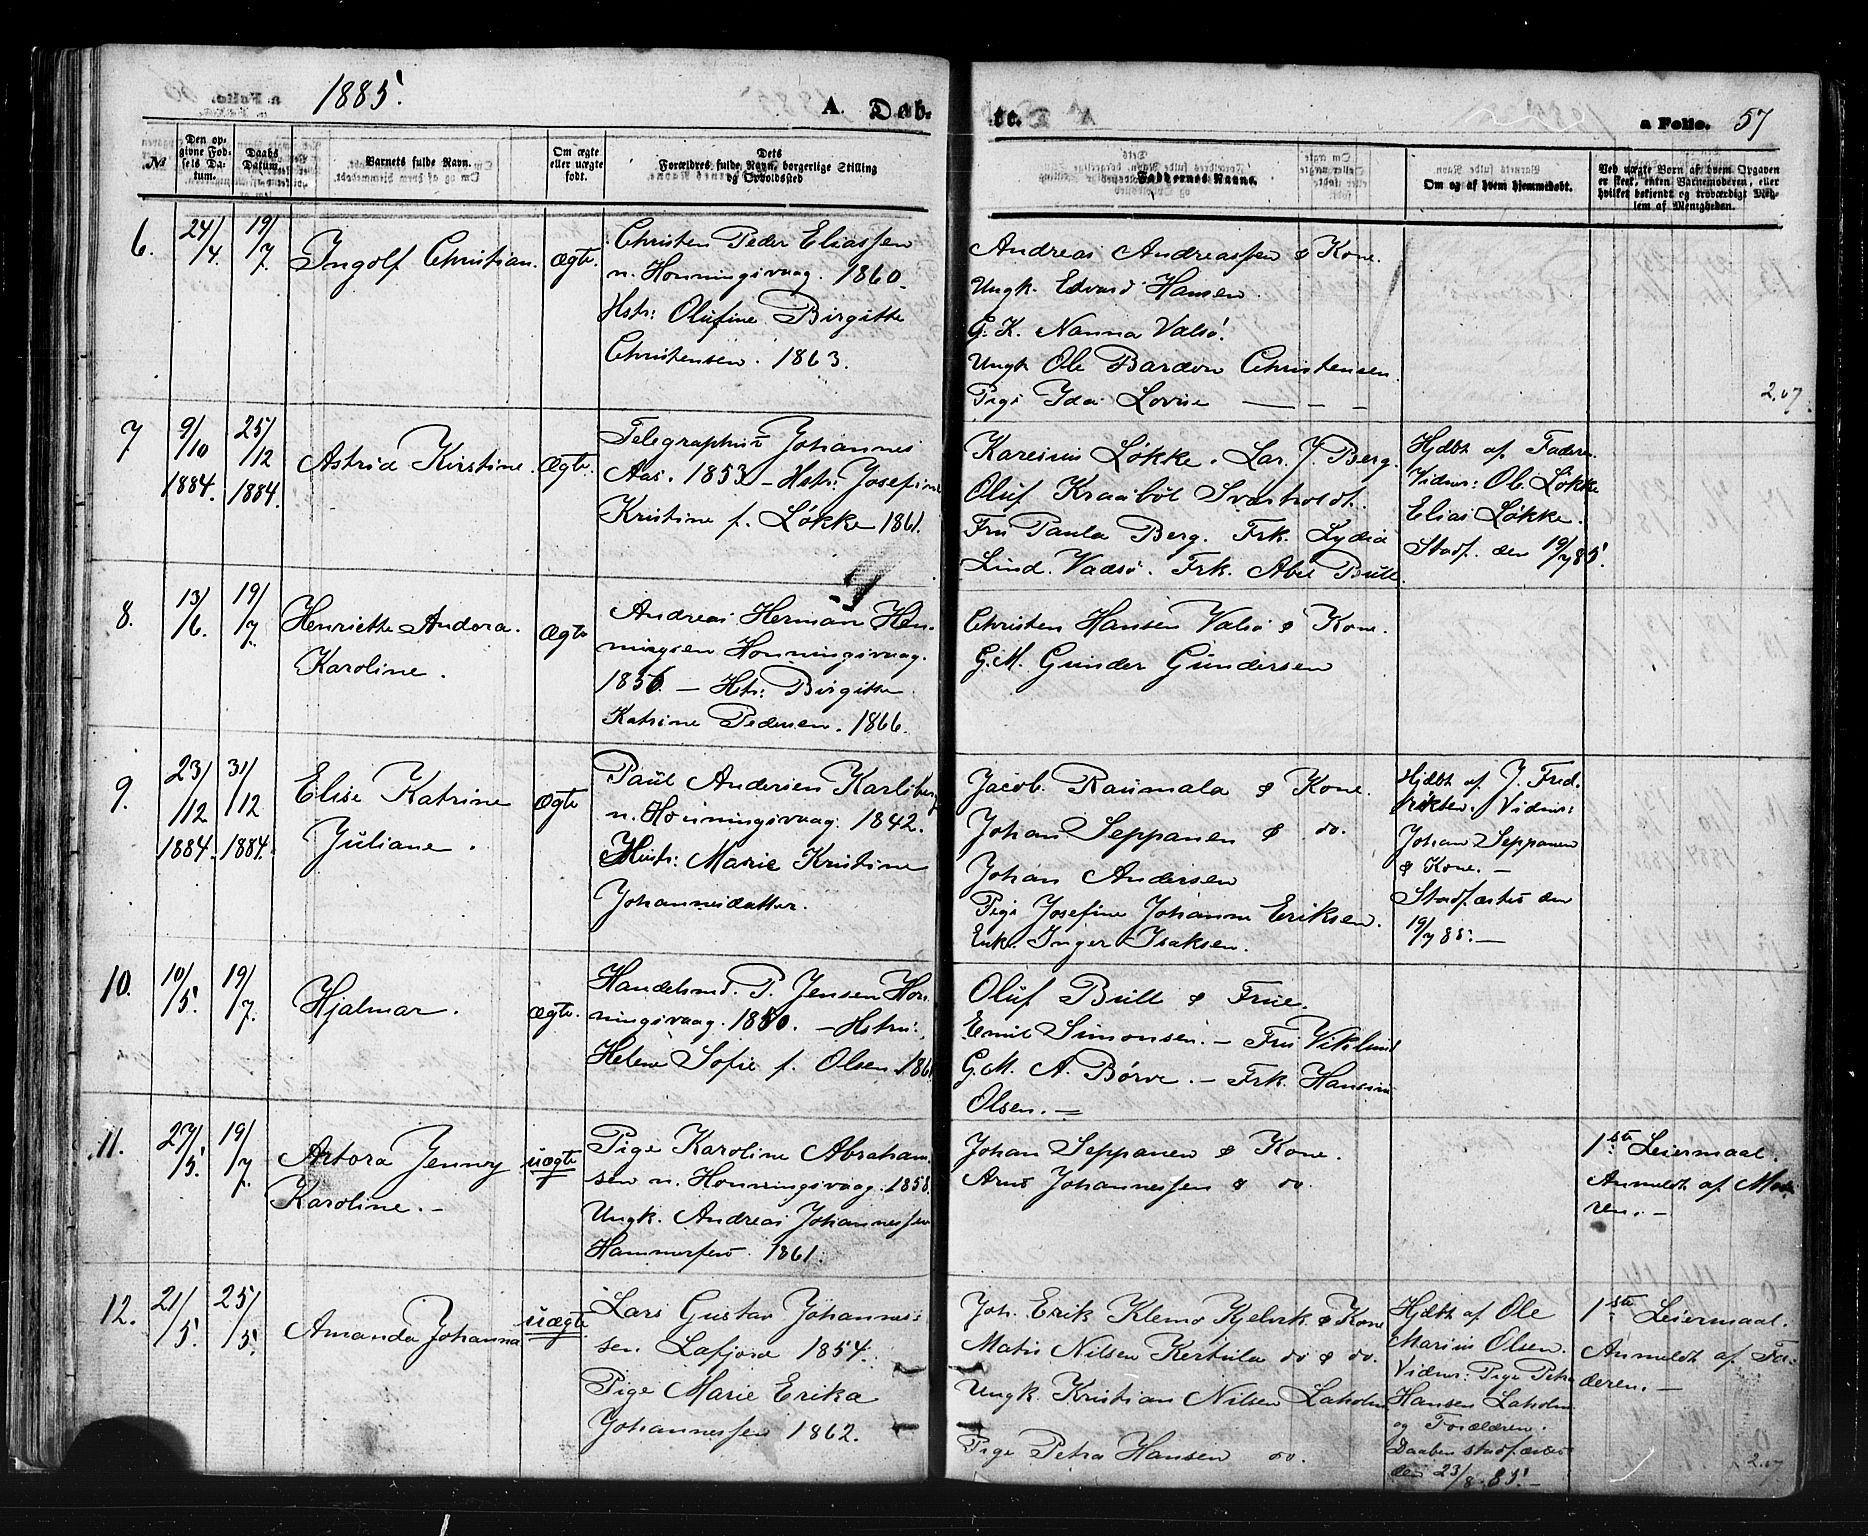 1885.
A. Døb-
te.
a Folio. 57
№
Den opgivne Fødsels Datum.
Daabs Datum.
Barnets fulde Navn.
Om ægte eller uægte født.
Dets Forældres fulde Navn, borgerlige Stilling og Opholdssted
Faddernes Navne.
Om og af hvem hjemmedøbt.
Ved uægte Børn af hvem Opgaven er skeet, enten Barnemoderen, eller hvilket bekjendt og troværdigt Medlem af Menigheden.
6. 24/4. 19/7. Ingolf Christian. Ægte.
Christen Peder Eliassen
n. Honningsvaag. 1860.
Hstr: Olufine Birgitte
Christensen. 1863.
Andreas Andreassen & Kone.
Ungk. Edvard Hansen.
G. K. Nanna Valsö.
Ungk Ole Bardon Christensen.
Pige Ida Lovise — — —
2.07.
7 9/10 1884. 25/12 1884. Astrid Kirstine. Ægte.
Telegraphist Johannes
Aas. 1853 – Hstr: Josefine
Kristine f. Løkke 1861.
Kareius Løkke. Lar. J. Berg.
Oluf Kraaböl Sværholdt.
Fru Paula Berg. Frk. Lydia
Lind. Vadsö. Frk. Abel Bull.
Hjdbt af Faderen
Vidner: Ole Løkke
Elias Løkke.
Stadf. den 19/7 85.
8. 13/6. 19/7. Henriette Andora.
Karoline.
Ægte
Andreas Herman Hen-
ningsen Honningsvaag.
1856. – Hstr: Birgitte
Katrine Pedersen. 1866.
Christen Hansen Valsö & Kone.
G. M. Gunder Gundersen
9. 23/12 1884. 31/12 1884. Elise Katrine
Juliane.
Ægte
Paul Andersen Karlsberg
n. Honningsvaag. 1842.
Hustr: Marie Kristine
Johannesdatter.
Jacob. Raumala & Kone.
Johan Seppanen & do.
Johan Andersen
Pige Josefine Johanne Eriksen.
Enke Inger Isaksen.
Hjdbt af J. Fred-
riksen. Vidner:
Johan Seppanen
& Kone. –
Stadfæstes den
19/7 85. –
10. 10/5. 19/7. Hjalmar. Ægte.
Handelsmd. P. Jensen Hon-
ningsvaag. 1850. – Hstru:
Helene Sofie f. Olsen. 1861
Oluf Bull & Frue.
Emil Simonsen. – Fru Viklund
G. M. A. Børve. – Frk. Hansine
Olsen. –
11. 27/5. 19/7. Artora Jenny
Karoline. –
uægte
Pige Karoline Abraham-
sen n. Honningsvaag. 1858.
Ungk. Andreas Johannessen
Hammerfest. 1861.
Johan Seppanen & Kone.
Arnt Johannessen & do.
1ste Leiermaal.
Anmeldt af Mode-
ren. –
12. 21/5. 25/5. Amanda Johanna uægte
Lars Gustav Johannes-
sen. Lafjord 1854.
Pige Marie Erika
Johannessen 1862.
Joh. Erik Klemo Kjelvik & Kone
Matis Nilsen Kertula do & do.
Ungk Kristian Nilsen Laholm
Pige Petra Hansen do.
Hjdbt af Ole
Marius Olsen.
Vidner: Pige Petra
Hansen Laholm
og Forældrene.
Daaben stadfæstes
den 23/8. 85. –
1ste Leiermaal.
Anmeldt af Fa-
deren. –
2.07